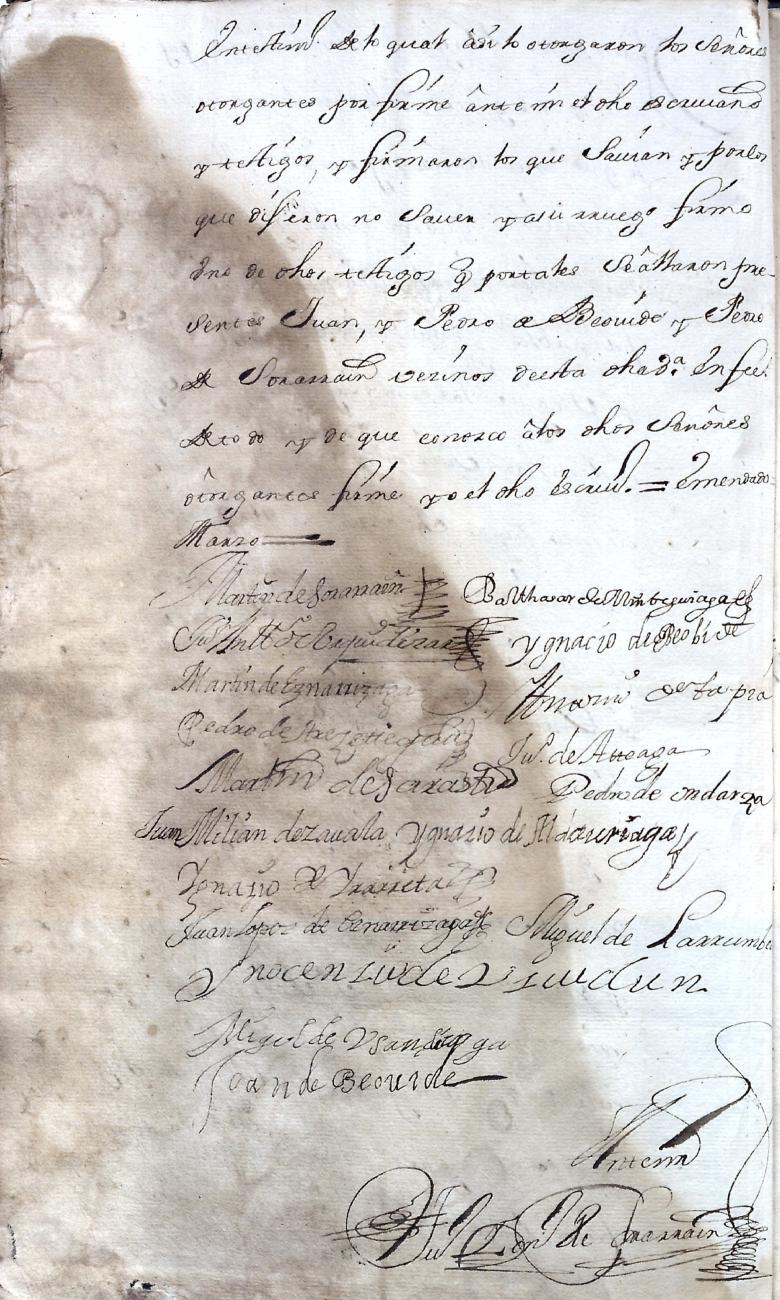 En testim.º de lo qual assi lo otorgaron los señores
otorgantes por firme ante mi el dho escriuano
y testigos, y firmaron los que sauian y por los
que dixeron no sauer y a su rruego firmo
vno de dhos testigos q̃ por tales se allaron pre-
sentes Juan, y Pedro de Beouide y Pedro
de Sorarrain vezinos desta dha v.ª En fee
de todo y de que conosco a los dhos señores
otorgantes firme yo el dho escriu.º = emendado
Marzo
Martin de Sorarrain Balthasar de Minteguiaga
Ju.º Antt.º de Ygnacio de Beobide
Martin de Eznarrizaga de la pia
Pedro de Ju.º de Atteaga
Martin de Sarastio Pedro de ondarza
Juan Milian de zauala Ygnazio de Aldauriaga
Ignazio de Irarreta
Juan Lopez de Eznarrizaga Miguel de Larrumbe
Inocenzio de
Migel de Vsandizaga
Joan de Beouide
Ante mi
Ju.º de Sorarrain